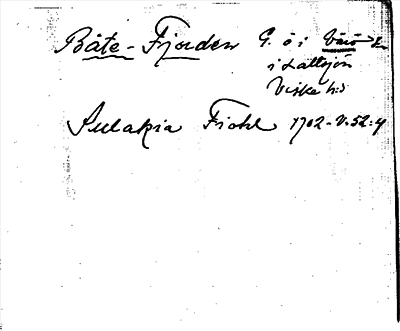 Båte-Fjorden G. ö i Värö
i Kattejön
Viske h:d
Sulakia Fiohl 1702-V.52:4